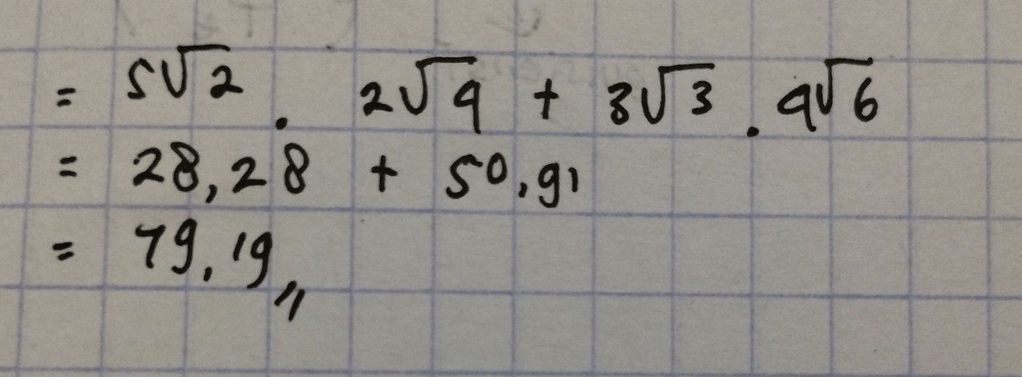 = 5√2 . 2√4 + 3√3 . 4√6
= 28,28 + 50,91
= 79,19,,